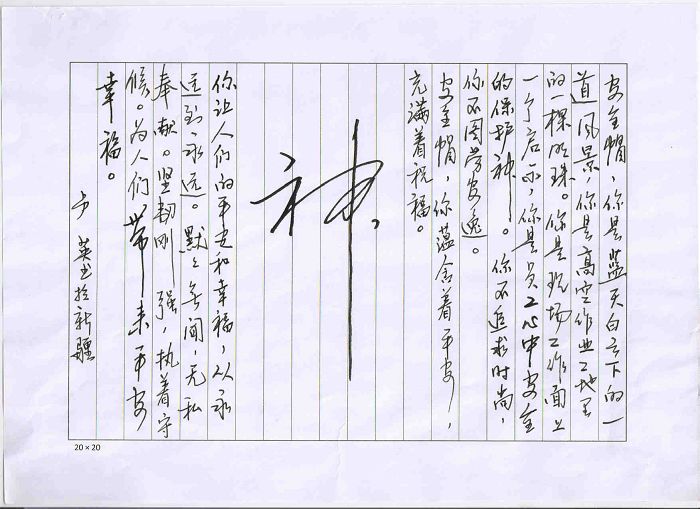 安全帽，你是蓝天白云下的一
道风景，你是高空作业工地里
的一棵明珠。你是现场工作面上
一个启示，你是员工心中安全
的保护神。你不追求时尚，
你不图劳安逸。
安全帽，你蕴含着平安，
充满着祝福。
神
你让人们的平安和幸福，从永
送到永远。默々无闻，无私
奉献。坚韧刚强，执着守
候。为人们带来平安
幸福。
英书於新疆
20×20